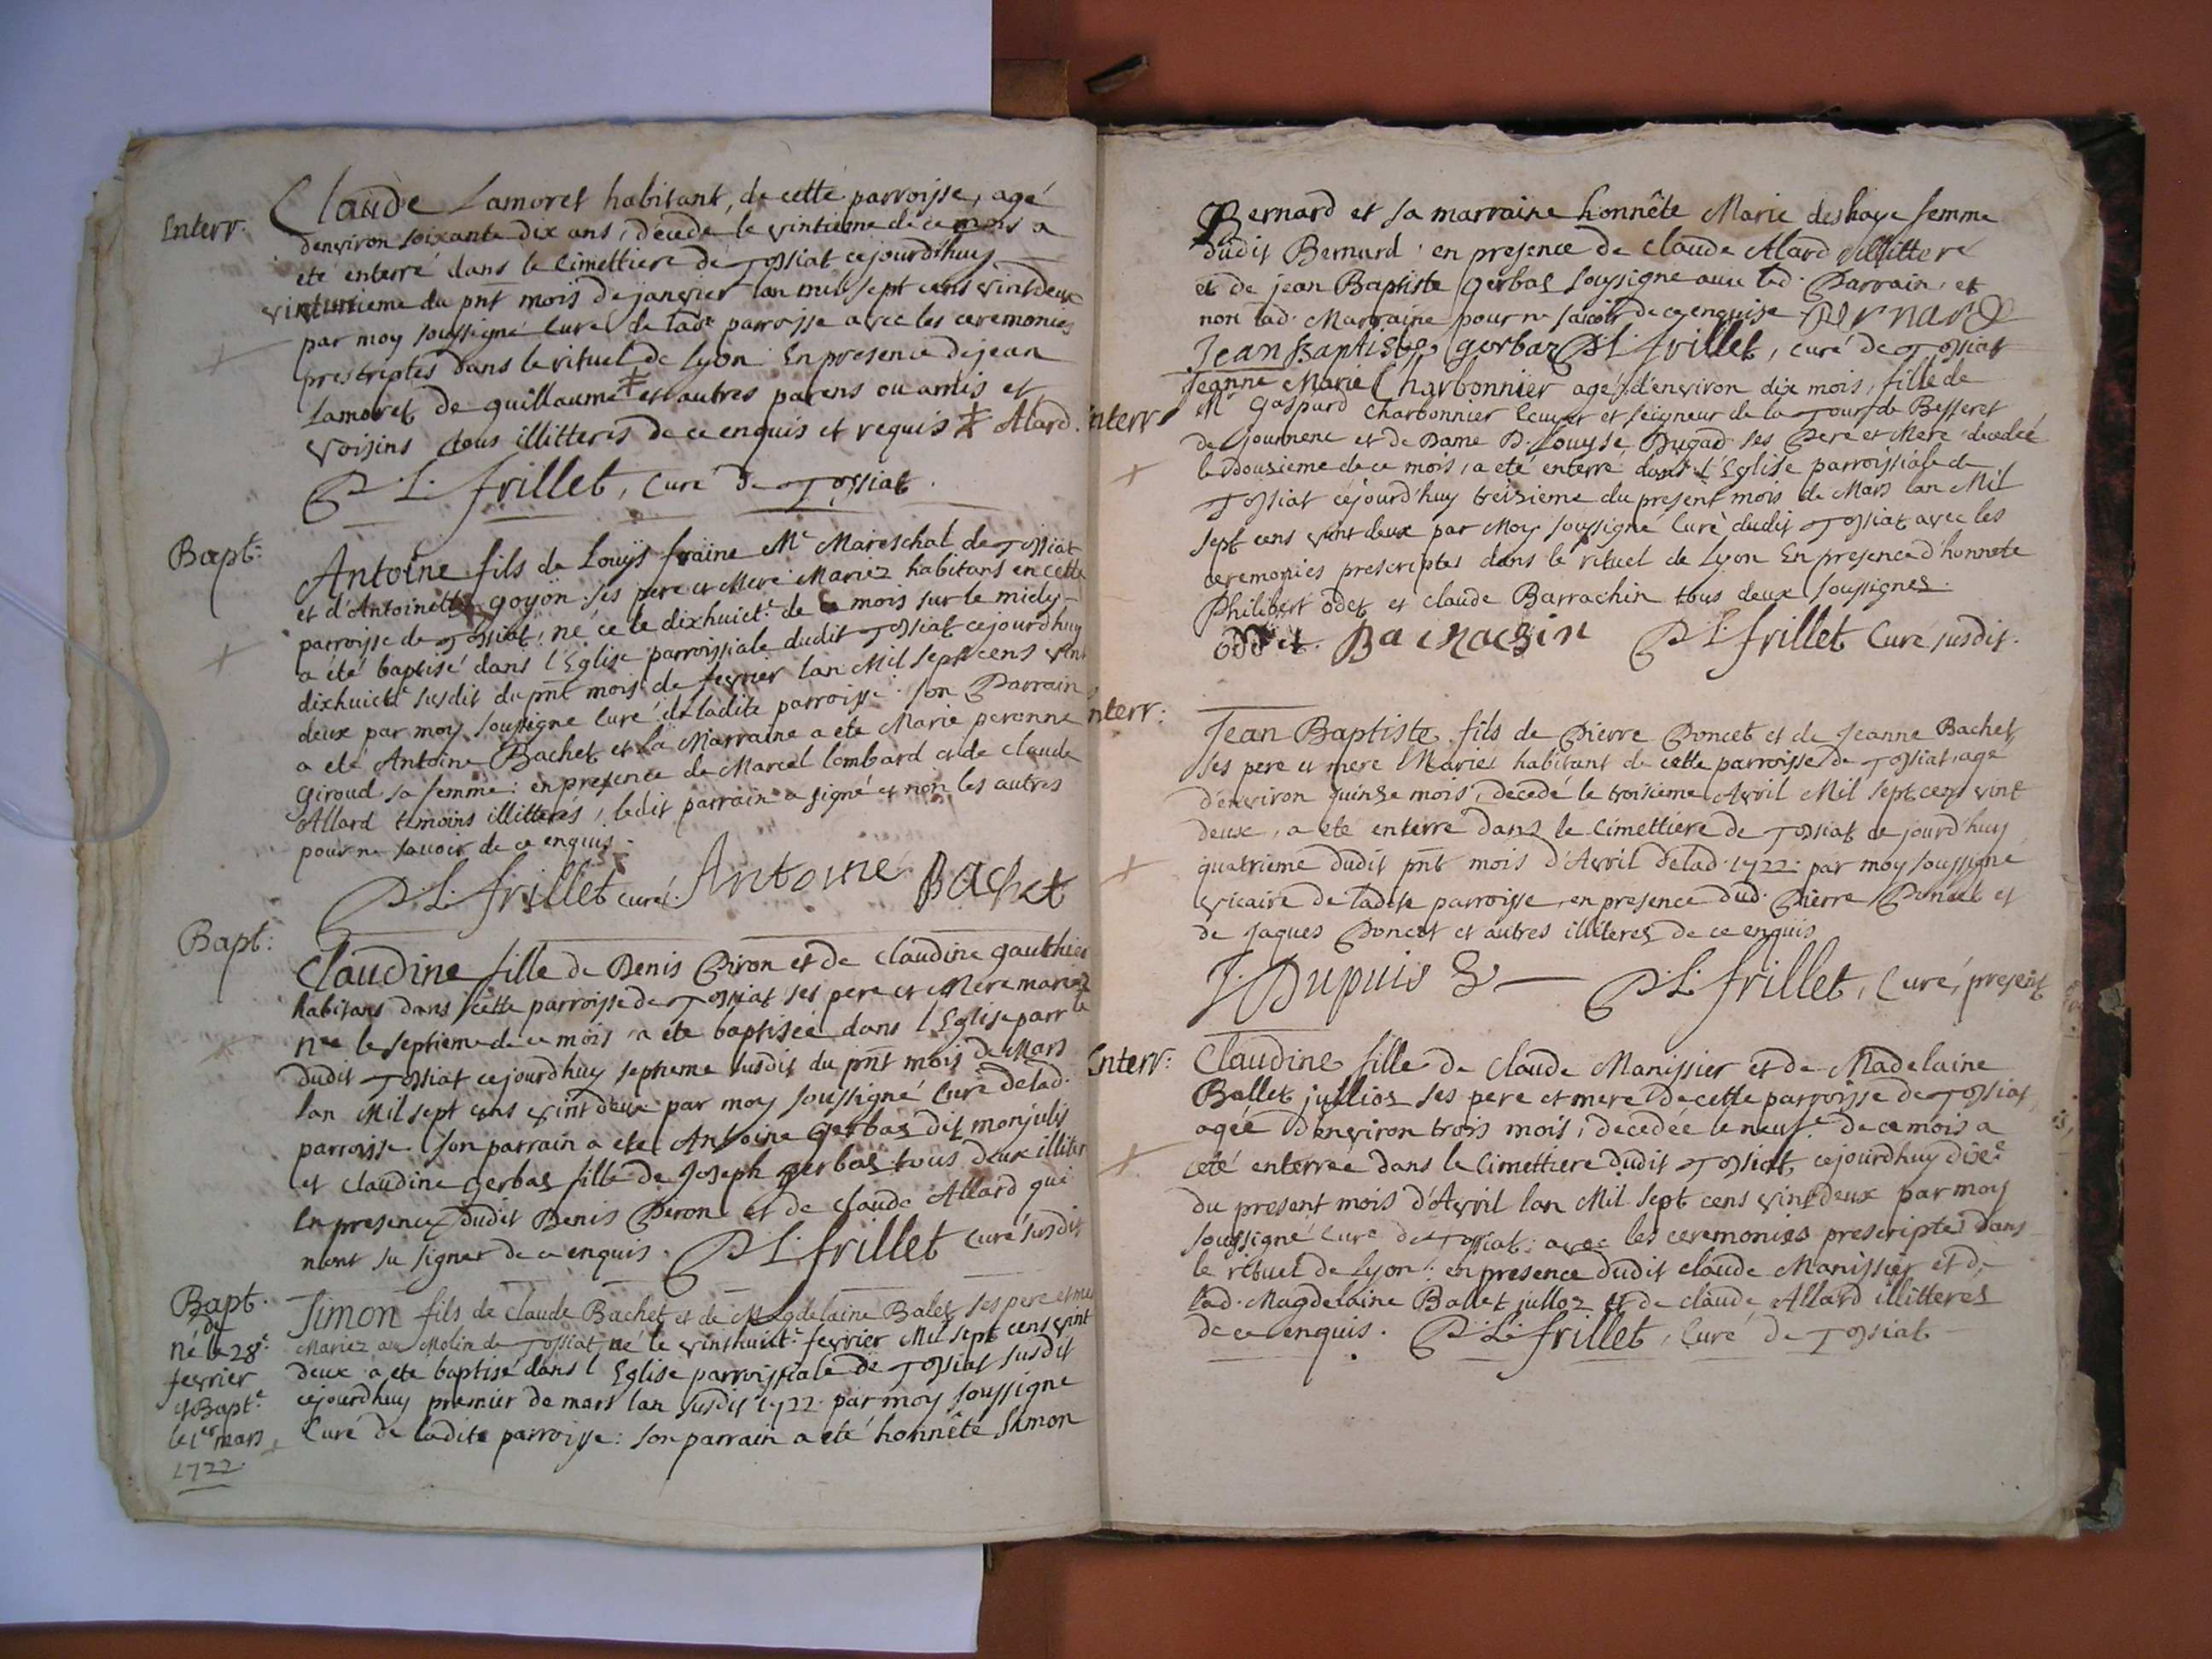 Interr.
Claude Lamoret habitant, de cette parroisse, agé
denviron soixante dix ans, décédé le vintieme de ce mois a
eté enterré dans le Cimettiere de Tossiat cejourd'huy
vintunieme du pnt mois de janvier lan mil sept cens vintdeux
par moy soussigné Curé de lade parroisse avec les ceremonies
prescriptes dans le rituel de Lyon. En presence de jean
Lamoret, de guillaume ⁑ et autres parens ou amis et
voisins tous illitteres de ce enquis et requis ⁑ Alard.
P. L. frillet, Curé de Tossiat.
Bapt:
Antoine fils de Louys fraine Me Mareschal de Tossiat
et d'Antoinette goyon. ses pere et Mere Mariez habitans en cette
parroisse de Tossiat, né ce le dixhuicte de ce mois sur le midy
a été baptisé dans l'Eglise parroissiale dudit Tossiat cejourdhuy
dixhuicte susdit du pnt mois de fevrier lan Mil sept cens vint
deux par moy soussigné Curé de ladite parroisse. son Parrain
a eté Antoine Bachet et la Marraine a ete Marie peronne
giroud sa femme: en presence de Marcel lombard et de Claude
Allard temoins illitteres, ledit parrain a signé et non les autres
pour ne sauoir de ce enquis.
P. L. frillet curé. Antoine Bachet
Bapt:
Claudine fille de Denis Piron et de Claudine gauthier
habitans dans cette parroisse de Tossiat ses pere et Mere mariez
née le septieme de ce mois a été baptisée dans l'Eglise parrle
dudit Tossiat cejourdhuy septieme susdit du pnt mois de Mars
lan Mil sept cens vint deux par moy soussigné Curé de lad.
parroisse. son parrain a ete Antoine Gerbas dit monjulis
et Claudine Gerbas fille de Joseph gerbas tous deux illiter
En presence dudit Denis Peron et de Claude Allard qui
nont su signer de ce enquis. P. L. frillet Curé susdit
Bapt.
né le 28e
fevrier
et Bapt.e
le 1er mars
1722.
Simon fils de Claude Bachet et de Magdelaine Balet ses pere et me
Mariez au Molin de Tossiat, né le vinthuicte fevrier Mil sept cens vint
deux a ete baptisé dans l'Eglise parroissiale de Tossiat susdit
cejourdhuy premier de mars lan susdit 1722. par moy soussigné
Curé de ladite parroisse: son parrain a été honnête Simon
Bernard et sa marraine honnête Marie deshaye femme
dudit Bernard. en presence de Claude Alard illittere
et de jean Baptiste gerbas soussigné avec led. Parrain, et
non lad. Marraine pour ne savoir de ce enquise. Bernard
Jean Baptiste gerbaz P. L. frillet, curé de Tossiat
interr
Jeanne Marie Charbonnier agée d'environ dix mois, fille de
Mr gaspard Charbonnier Ecuyer et seigneur de la Tour de Besseret
de journene et de Dame D. Louyse Dugad ses Pere et Mere decedée
le dousieme de ce mois, a eté enterré dans l'Eglise parroissiale de
Tossiat cejourd'huy treisieme du present mois de Mars lan Mil
sept cens vint deux par Moy soussigné Curé dudit Tossiat avec les
ceremonies prescriptes dans le rituel de Lyon En presence d'honnete
Philibert odet et Claude Barrachin tous deux soussignes.
oddet. Barrachin P. L. frillet Curé susdit.
nterr:
Jean Baptiste fils de Pierre Poncet et de Jeanne Bachet
ses pere et mere Mariés habitant de cette parroisse de Tossiat, agé
d'environ quinse mois, décedé le troisieme Avril Mil sept cens vint
deux, a eté enterré dans le Cimettiere de Tossiat cejourd'huy
quatrieme dudit pnt mois d'Avril delad. 1722. par moy soussigné
vicaire de ladite parroisse, en presence dud. Pierre Poncet et
de Jaques Poncet et autres illiteres de ce enquis
J. Dupuis P. L. frillet, Curé, present
Enterr:
Claudine fille de Claude Manissier et de Madelaine
Ballet jullioz ses pere et mere de cette parroisse de Tossiat,
agée d'environ trois mois, decedée le neufe de ce mois a
eté enterrée dans le Cimettiere dudit Tossiat, cejourdhuy dixe
du present mois d'Avril lan Mil sept cens vint deux par moy
soussigné Curé de Tossiat: avec les ceremonies prescriptes dans
le rituel de Lyon: en presence dudit Claude Manissier et de
lad. Magdelaine Ballet julloz et de Claude Allard illitteres
de ce enquis. P. L. frillet, Curé de Tossiat